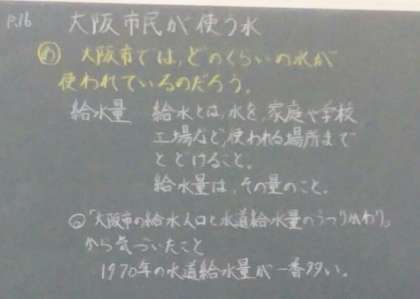 P.16 大阪市民が使う水
め 大阪市では、どのくらいの水が
使われているのだろう。
給水量 給水とは、水を、家庭や学校
工場など、使われる場所まで
とどけること。
給水量は、その量のこと。
「大阪市の給水人口と水道給水量のうつりかわり」
から気づいたこと
1970年の水道給水量が一番多い。